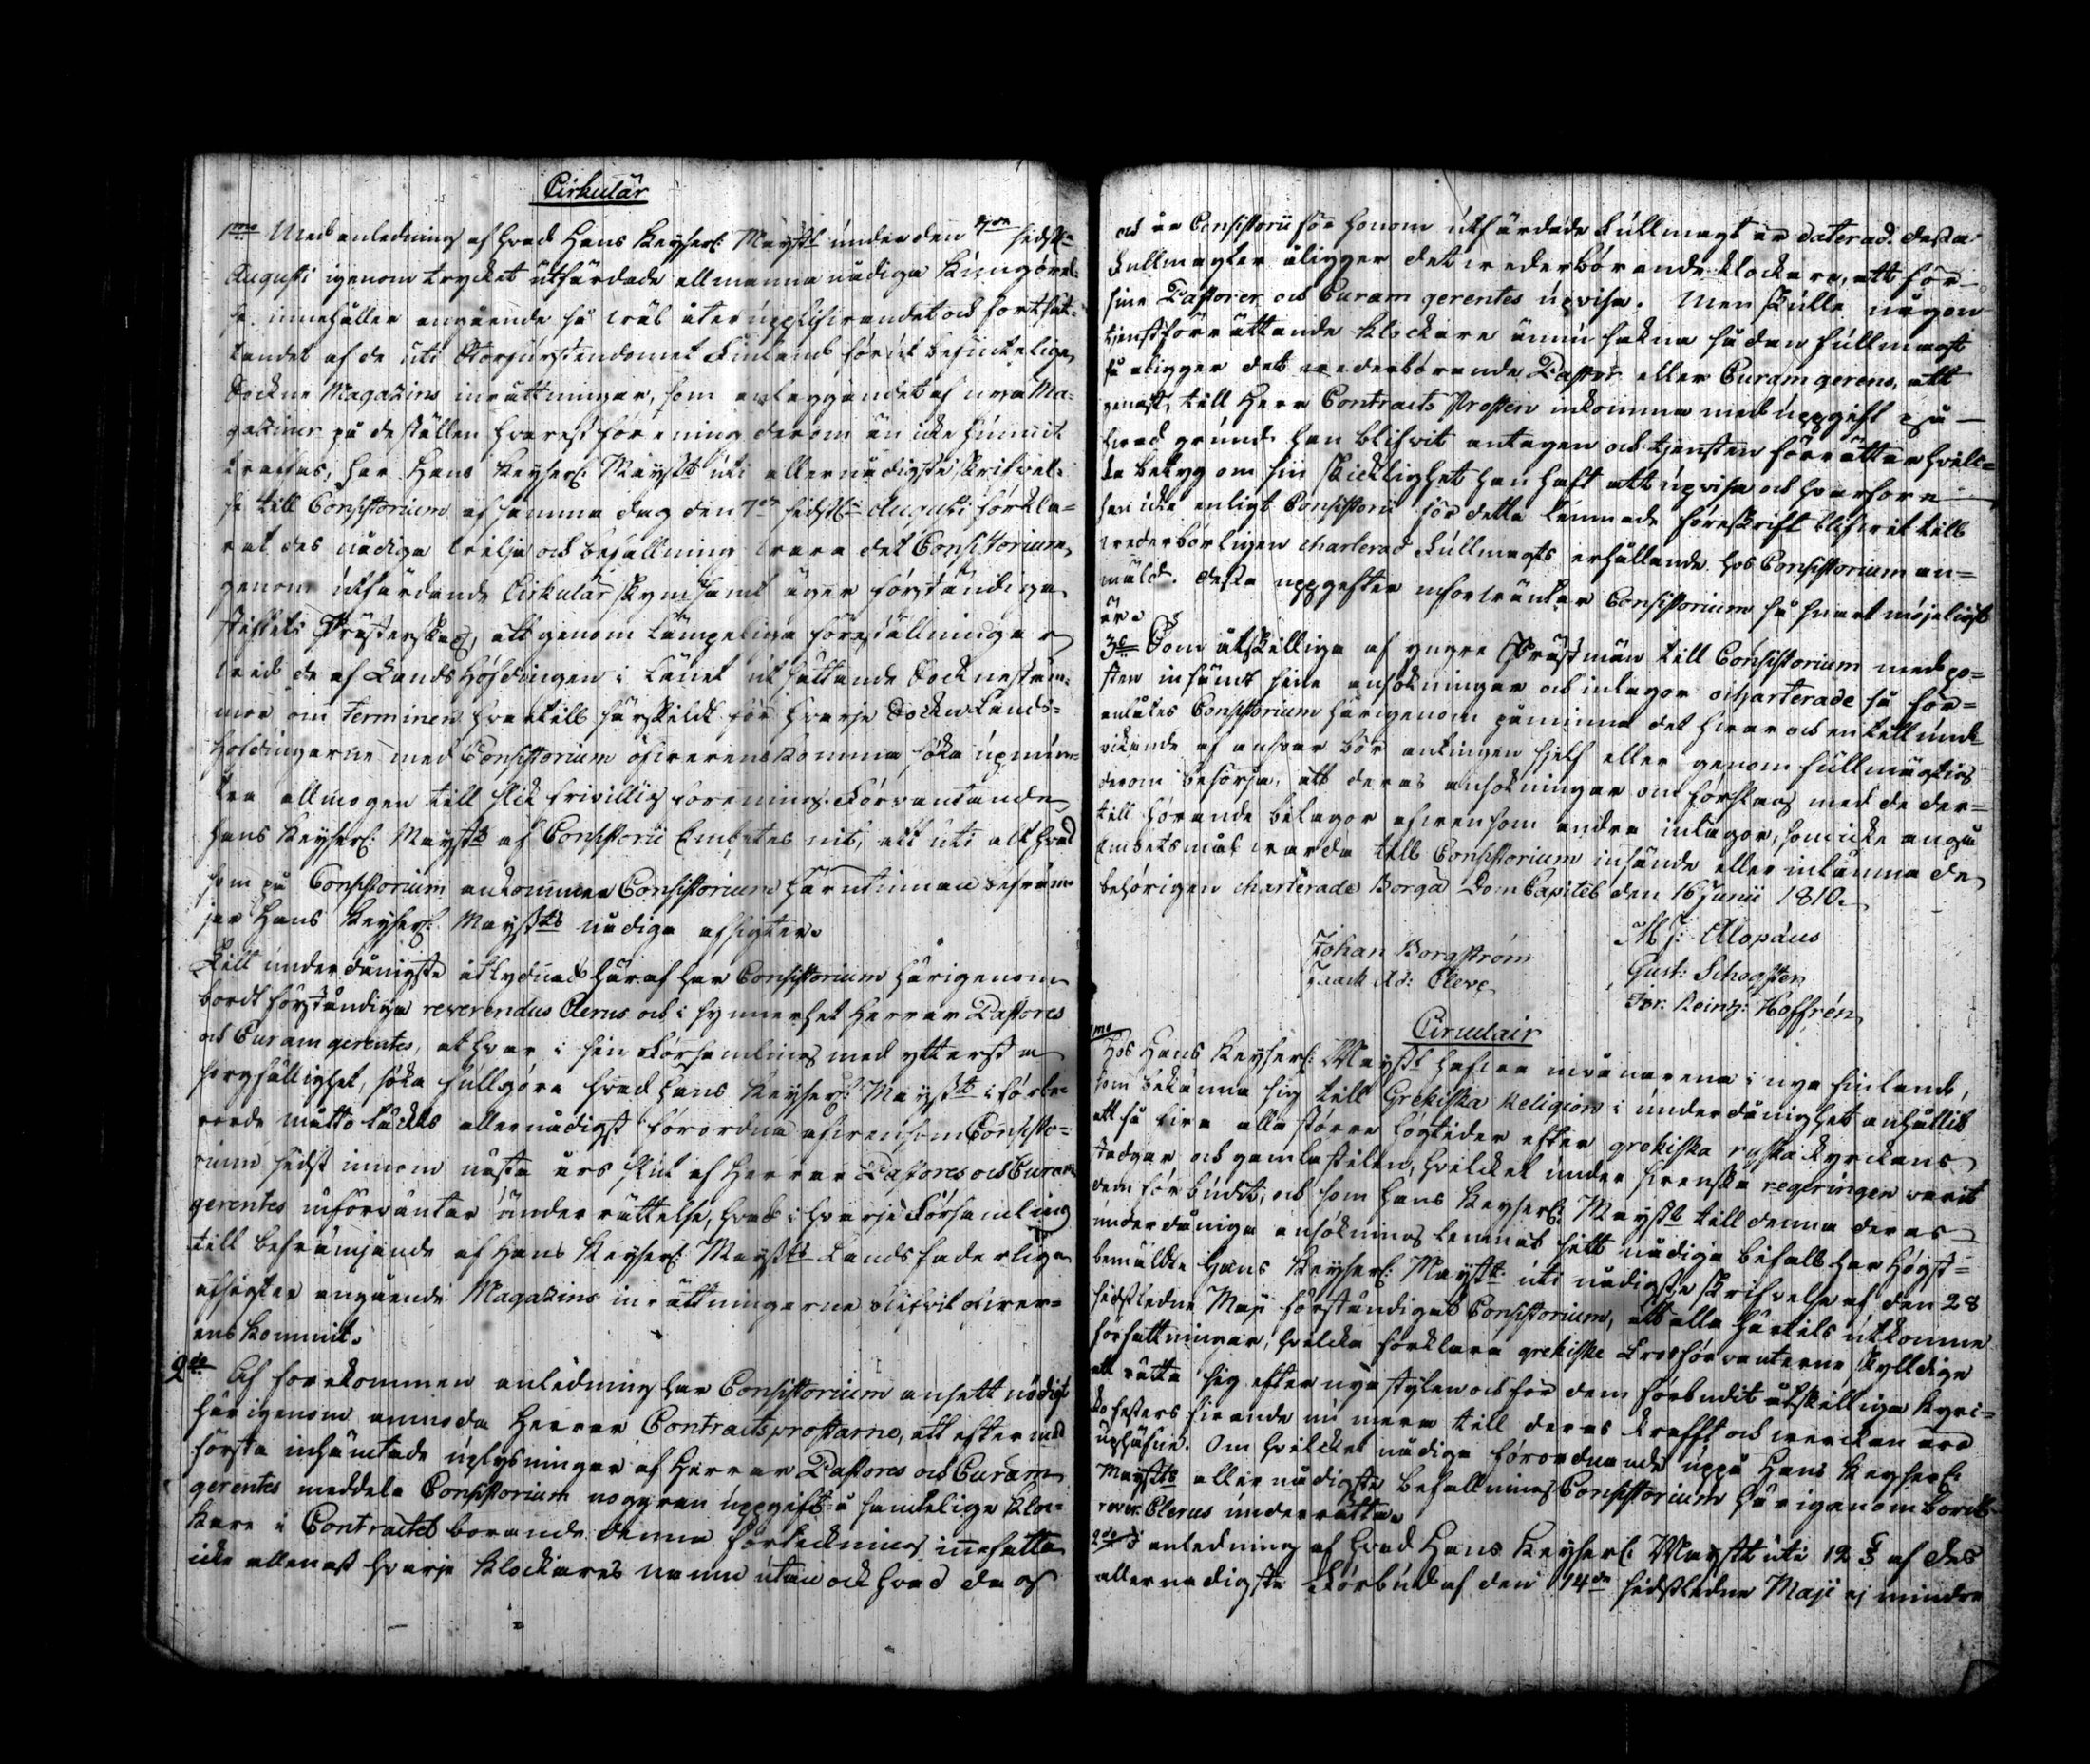 Cirkulär
1mo Med anledning af hvad Hans Keyserl: Mayst:t under den 7de sidstl:
Augusti igenom trycket utfärdade allmänna nådiga Kungörel=
se innehåller angående så wäl återupplifwandet och fortsät-
tandet af de uti Storfurstendömet Finland förut befintelige
Sockne Magazins inrättningar, som anläggandet af nya Ma=
gaziner på de ställen hvarest förening derom än icke hunnit
träffas, har Hans Keyserl: Mayst:t uti allernådigste skrifvel=
se till Consistorium af samma dag den 7de sidstl: Augusti förkla=
rat des nådiga wilja och befallning wara det Consistorium,
genom utfärdande Cirkulär skyndsamt äger förständiga
Stiftets Presterskap, att genom lämpeliga föreställningar
wid de af Landshöfdingen i Länet utsättande Socknestäm=
mor om terminen hvartill särskildt för hvarje Sockn Lands=
höfdingarne med Consistorium öfwerenskomma söka upmun=
tra allmogen till slik friwillig förening. Förwäntande
Hans Keyserl: Mayst:t af Consistorii Embetes nit, att uti alt hvad
som på Consistorium ankommer Consistorium härutinnan befräm=
jar Hans Keyserl: Mayst:ts nådiga afsigter.
Till underdånigste åtlydnad häraf har Consistorium härigenom
bordt förständiga reverendus Clerus och i synnerhet Herrar Pastores
och Curam gerentes, at hvar i sin Församling med yttersta
sorgfällighet, söka fullgöra hvad Hans Keyserl: Mayst:t i förbe=
rörde måtto täckts allernådigst förordna äfwensom Consisto=
rium sidst innom nästa års slut af Herrar Pastores och Curam
gerentes införwäntar underrättelse, hvad i hvarje Församling
till befrämjande af Hans Keyserl: Mayst:ts Landsfaderliga
afsigter angående Magazins inrättningarne blifvit öfwer=
enskommit.
2do Af förekommen anledning har Consistorium ansett nödigt
härigenom anmoda Herrar Contractsprostarne, att efter med
första inhämtade uplysningar af Herrar Pastores och Curam
gerentes meddela Consistorium noggran uppgift å samtelige Kloc=
kare i Contractet borande denna förteckning innefatta
icke allenast hvarje Klockares namn utan ock hvad dag
och år Consistorii för honom utfärdade Fullmagt är daterad. Dessa
Fullmagter åligger det wederbörande Klockare, att för
sine Pastorer och Curam gerentes upvisa. Men skulle någon
tjenstförrättande Klockare ännu sakna sådan fullmagt
så åligger det wederbörande Pastor eller Curam gerens, att
genast, till Herr Contracts Prosten inkomma med uppgift på
hvad grund han blifvit antagen och tjensten förrättar hvilc=
ka betyg om sin skicklighet han haft att upvisa och hvarföre
han icke enligt Consistorii för detta lemnade föreskrift blifvit till
wederbörligen charterad Fullmagts erhållande hos Consistorium an=
mäld. Dessa uppgifter införwäntar Consistorium så snart möjeligt
är.
3o Som åtskillige af yngre Prestmän till Consistorium med po=
sten insändt sine ansökningar och inlagor ocharterade så för=
anlåtes Consistorium härigenom påminna det hvar och en till und=
vikande af answar bör antingen sjelf eller genom fullmägtig
derom besörja, att deras ansökningar om förslag med de der=
till hörande bilagor äfvensom andra inlagor, som icke angå
Embetsmål warda till Consistorium insände eller inlämnade
behörigen charterade Borgå DomCapitel den 16 Junii 1810.
M. J: Alopæus
Johan Borgström
Gust: Schogsten
Isaach Ad: Cleve
For: Reinh: Hoffrén
Circulair
1mo
Hos Hans Keyserl: Mayst:t hafva invånarena i nya Finland,
som bekänna sig till Grekiska Religion i underdånighet anhållit
att få fira alla större högtider efter grekiska ryska kyrckans
stadgar och gamla stilen, hvilcket under swenska regeringen warit
dem förbudit, och som Hans Keyserl: Mayst:t till denna deras
underdåniga ansökning lemnat sitt nådiga bifall har Högst=
bemälde Hans Keyserl: Mayst:t uti nådigste skrifvelse af den 28
sidstledne Maji förständigat Consistorium, att alla härtils utkomne
författningar, hvilcka förklara grekiske trosförwanterne skylldige
att rätta sig efter nya stylen och för dem förbudit åtskilliga Kyrc=
kofesters firande nu mera till deras krafft och werckan äro
uphäfne. Om hvilcket nådiga förordnande uppå Hans Keyserl:
Mayst:ts allernådigste befallning Consistorium härigenom bordt
rever: Clerus underrätta.
2do I anledning af hvad Hans Keyserl: Mayst:t uti 12 § af Des
allernådigste Förbud af den 14de sidstledne Maji ej mindre